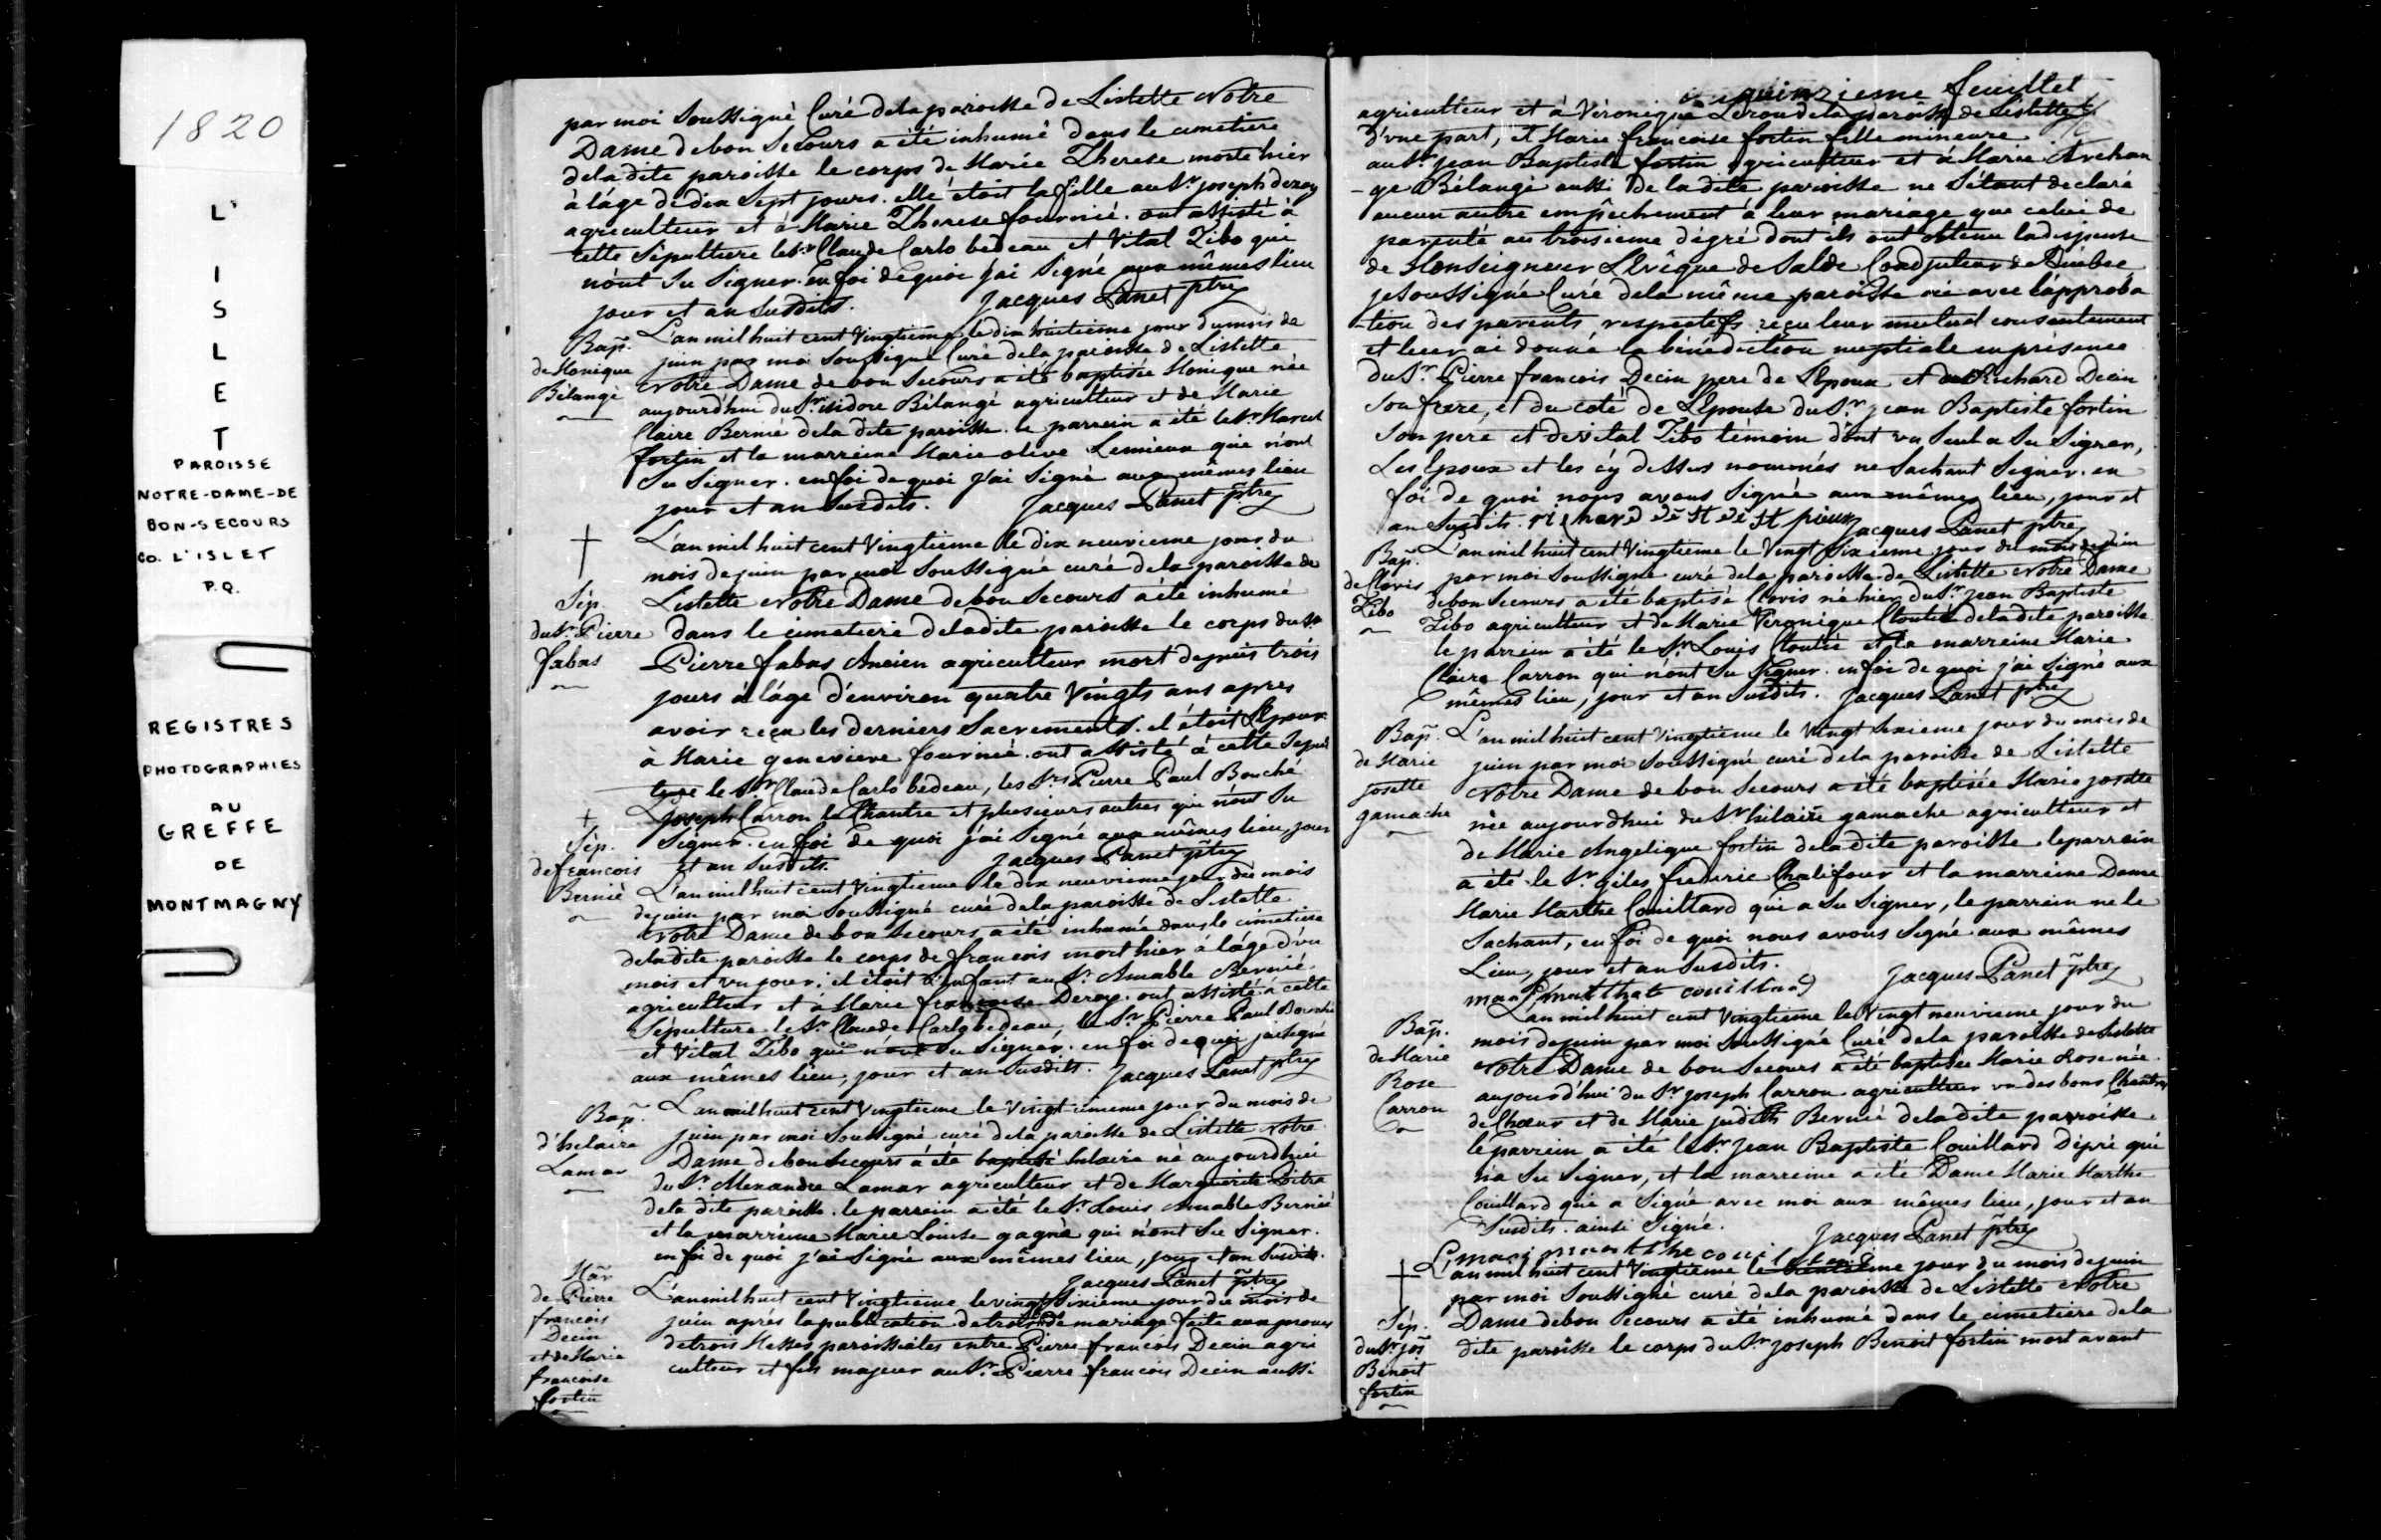 1820
L'
I
S
L
E
T
PAROISSE
NOTRE-DAME-DE
BON-SECOURS
CO. L'ISLET
P.Q.
REGISTRES
PHOTOGRAPHIES
AU
GREFFE
DE
MONTMAGNY
par moi Soussigné Curé dela paroisse de Lislette Notre
Dame de bon Secours a été inhumé dans le cimetiere
dela dite paroisse le corps de Marie Therese morte hier
à l'âge de dix Sept jours. elle étoit la fille au Sr. joseph deroy
agriculteur et à Marie Therese fournié. ont assisté à
cette Sépulture le Sr. Claude Carlo bedeau et Vital Tibo qui
n'ont Su Signer. en foi de quoi j'ai Signé aux mêmes lieu
jour et an Susdits. Jacques Panet ptre
Bap. L'an mil huit cent Vingtieme le dix huitieme jour du mois de
de Monique juin par moi Soussigné Curé dela paroisse de Lislette
Bélangé Notre Dame de bon Secours a été baptisée Monique née
aujourd'hui du Sr. isidore Bélangé agriculteur et de Marie
Claire Bernié dela dite paroisse. le parrein a été le Sr. Marcel
fortin et la marreine Marie olive Lemieux qui n'ont
Su Signer. en foi de quoi j'ai Signé aux mêmes lieu
jour et an Susdits. Jacques Panet ptre
L'an mil huit cent Vingtieme le dix neuvieme jour du
mois de juin par moi Soussigné curé dela paroisse de
Sép. Lislette Notre Dame de bon Secours a été inhumé
du Sr. Pierre dans le cimetiere dela dite paroisse le corps du Sr
fabas Pierre fabas Ancien agriculteur mort depuis trois
jours à l'âge d'environ quatre Vingts ans apres
avoir reçu les derniers Sacrements. il étoit L'Epoux
à Marie genevieve fournié. ont assisté à cette Sepul
ture le Sr. Claude Carlo bedeau, les Srs Pierre Paul Bouché
joseph Carron le Chantre et plusieurs autres qui n'ont Su
Sép. Signer. en foi de quoi j'ai Signé aux mêmes lieu, jour
de francois et an Susdits. Jacques Panet ptre
Bernié L'an mil huit cent Vingtieme le dix neuvieme jour du mois
de juin par moi Soussigné curé dela paroisse de Lislette
Notre Dame de bon Secours a été inhumé dans le cimetiere
dela dite paroisse le corps de francois mort hier à l'âge d'un
mois et un jour. il étoit L'enfant au Sr. Amable Bernié
agriculteur et à Marie francoise Deroy. ont assisté à cette
Sépulture le Sr. Claude Carlo bedeau, le Sr. Pierre Paul Bouché
et Vital Tibo qui n'ont Su Signer. en foi de quoi j'ai Signé
aux mêmes lieu, jour et an Susdits. Jacques Panet ptre
Bap. L'an mil huit cent Vingtieme le Vingt jour du mois de
d'hilaire juin par moi Soussigné curé dela paroisse de Lislette Notre
Lamar Dame de bon Secours a été baptisé hilaire né aujourdhui
du Sr. Alexandre Lamar agriculteur et de Marguerite
dela dite paroisse. le parrein a été le Sr. Louis Amable Bernié
et la marreine Marie Louise gagné qui n'ont Su Signer.
en foi de quoi j'ai Signé aux mêmes lieu, jour et an Susdits.
Jacques Panet ptre
Mar. L'an mil huit cent Vingtieme le vingt Sixieme jour du mois de
de Pierre juin aprés la publication de trois de mariage faite aux prones
francois de trois Messes paroissiales entre Pierre francois Decin agri
Decin culteur et fils majeur au Sr. Pierre francois Decin aussi
et de Marie
francoise
fortin
quinzieme feuillet
agriculteur et à Véronique dela paroisse de Lislette
d'une part, et Marie francoise fortin fille mineure
au Sr. jean Baptiste fortin agriculteur et à Marie Archan
-ge Bélangé aussi de la dite paroisse ne S'étant declaré
aucun autre empêchement à leur mariage que celui de
parenté au troisieme dégré dont ils ont obtenu la dispense
de Monseigneur L'Evêque de Salde Coadjuteur de Quebec
je Soussigné Curé dela même paroisse ai avec l'approba
-tion des parents respectifs reçu leur mutuel consentement
et leur ai donné la bénédiction nuptiale en présence
du Sr. Pierre francois Decin pere de L'Epoux et de Richard Decin
Son frere, et du coté de L'Epouse du Sr. jean Baptiste fortin
Son pere et de vital Tibo témoin dont un Seul a Su Signer,
Les Epoux et les cy dessus nommés ne Sachant Signer. en
foi de quoi nous avons Signé aux mêmes lieu, jour et
an Susdits. Jacques Panet ptre
Bap. L'an mil huit cent Vingtieme le Vingt Sixieme jour du mois de juin
de Clovis par moi Soussigné curé dela paroisse de Lislette Notre Dame
Tibo de bon Secours a été baptisé Clovis né hier du Sr. jean Baptiste
Tibo agriculteur et de Marie Veronique Cloutié dela dite paroisse
le parrein a été le Sr. Louis Cloutié et la marreine Marie
Claire Carron qui n'ont Su Signer. en foi de quoi j'ai Signé aux
mêmes lieu, jour et an Susdits. Jacques Panet ptre
Bap. L'an mil huit cent Vingtieme le Vingt Sixieme jour du mois de
de Marie juin par moi Soussigné curé dela paroisse de Lislette
josette Notre Dame de bon Secours a été baptisée Marie josette
gamache née aujourdhui du Sr hilaire gamache agriculteur et
de Marie Angelique fortin dela dite paroisse. le parrein
a été le Sr. giles frederic Chalifour et la marreine Dame
Marie Marthe Couillard qui a Su Signer, le parrein ne le
Sachant, en foi de quoi nous avons Signé aux mêmes
Lieu, jour et an Susdits. Jacques Panet ptre
L'an mil huit cent Vingtieme le Vingt neuvieme jour du
Bap. mois de juin par moi Soussigné Curé dela paroisse de Lislette
de Marie Notre Dame de bon Secours a été baptisée Marie Rose née
Rose aujourd'hui du Sr. joseph Carron agriculteur un des bons Chantres
Carron de Chœur et de Marie judith Bernié dela dite parroisse.
le parrein a été le Sr. jean Baptiste Couillard Dipré qui
n'a Su Signer, et la marreine a été Dame Marie Marthe
Couillard qui a Signé avec moi aux mêmes lieu, jour et an
Susdits. ainsi Signé. Jacques Panet ptre
L'an mil huit cent Vingtieme le trentieme jour du mois de juin
par moi Soussigné curé dela paroisse de Lislette Notre
Sép. Dame de bon Secours a été inhumé dans le cimetiere dela
du Sr. jos dite paroisse le corps du Sr. joseph Benoit fortin mort avant
Benoit
fortin